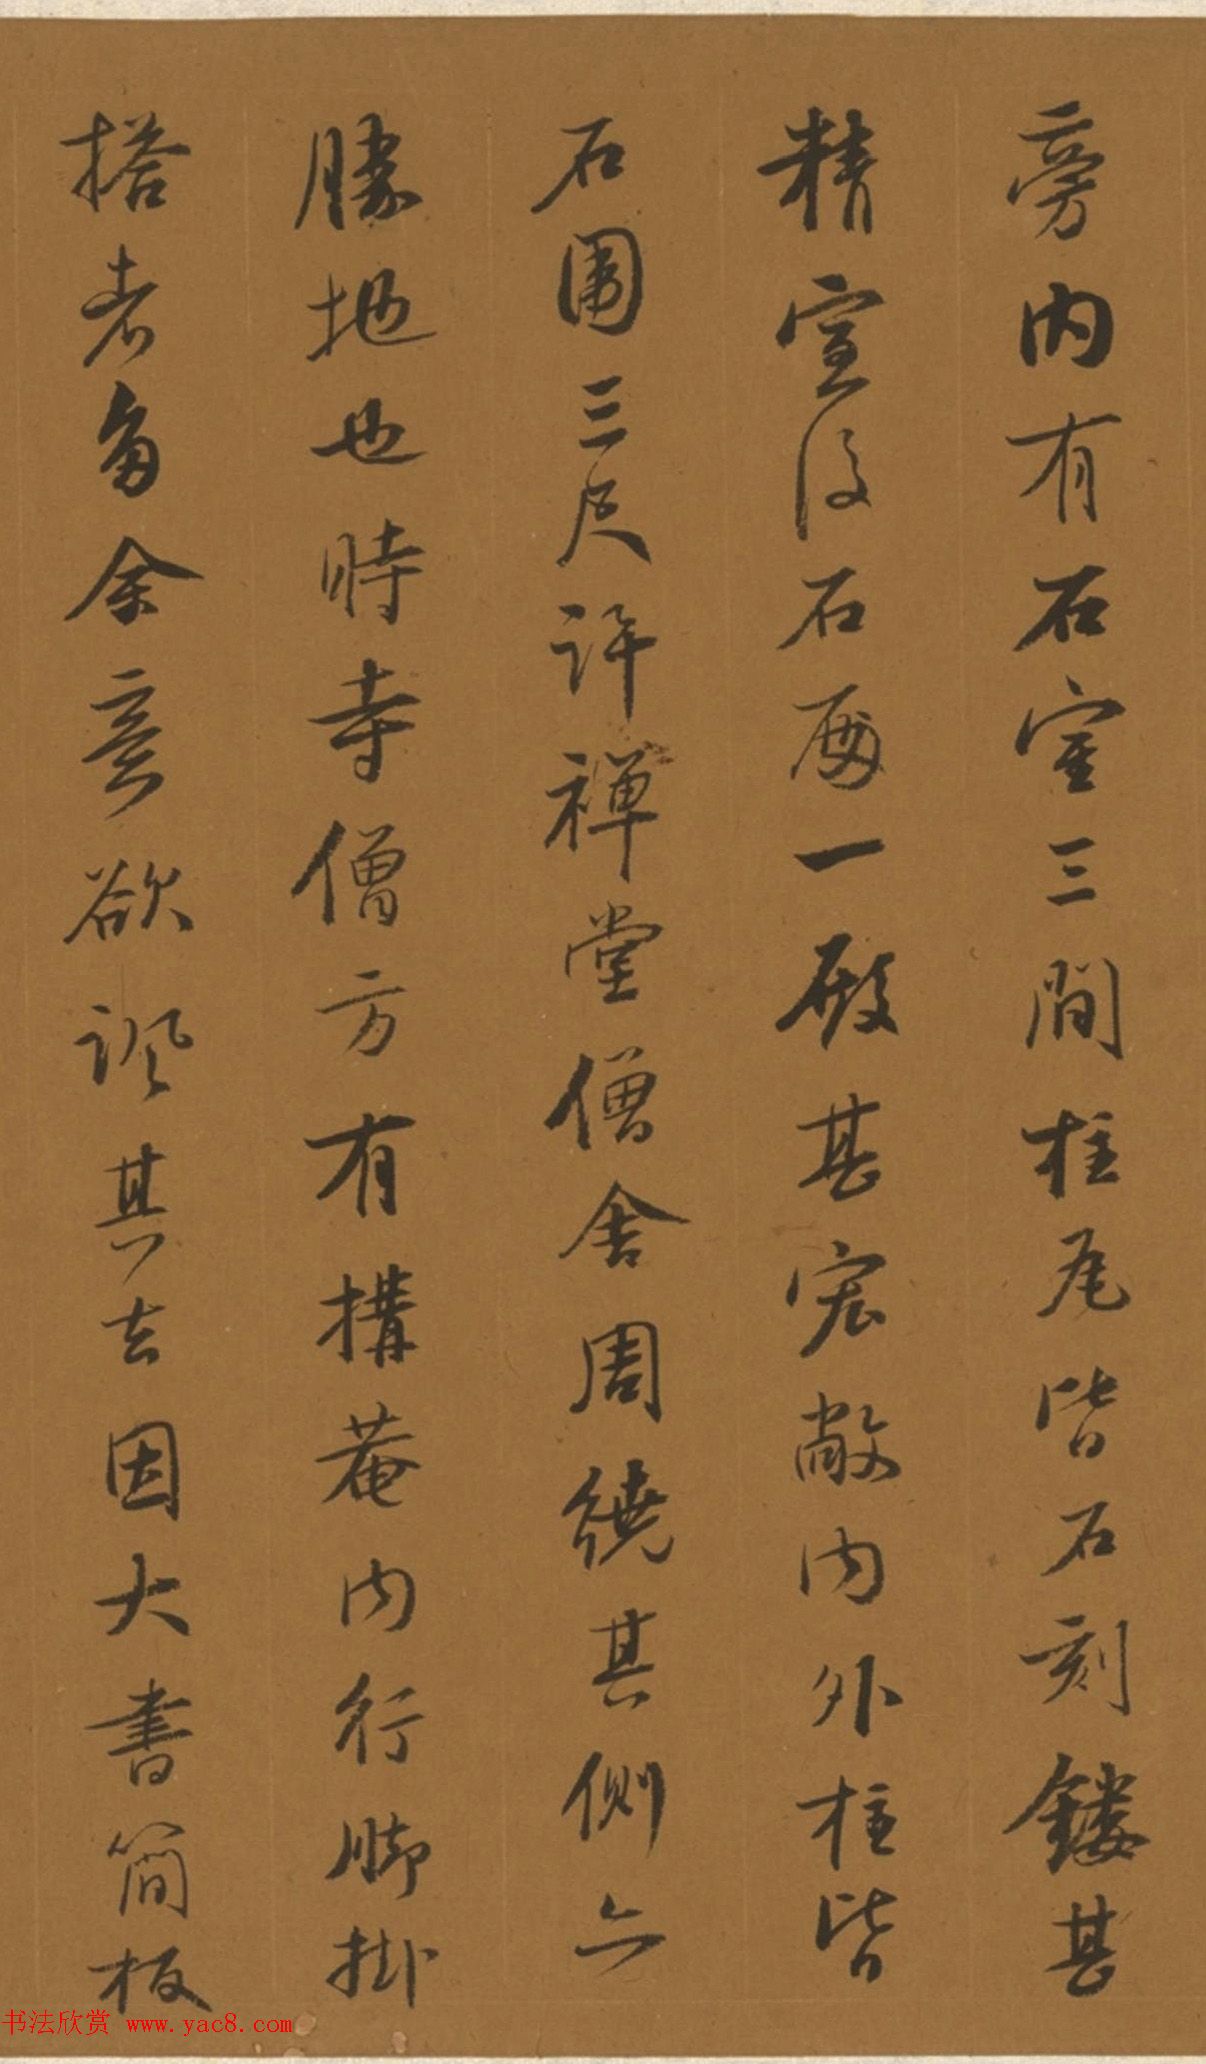 旁内有石室三間柱尾皆石刻鏤甚
精室後石為一殿甚宏敞内外柱皆
石圍三尺許禪堂僧舍周繞其側亦
勝地也時寺僧方有構菴内行脚掛
搭者多余意欲諷其去因大書簡板
书法欣赏 www.yac8.com